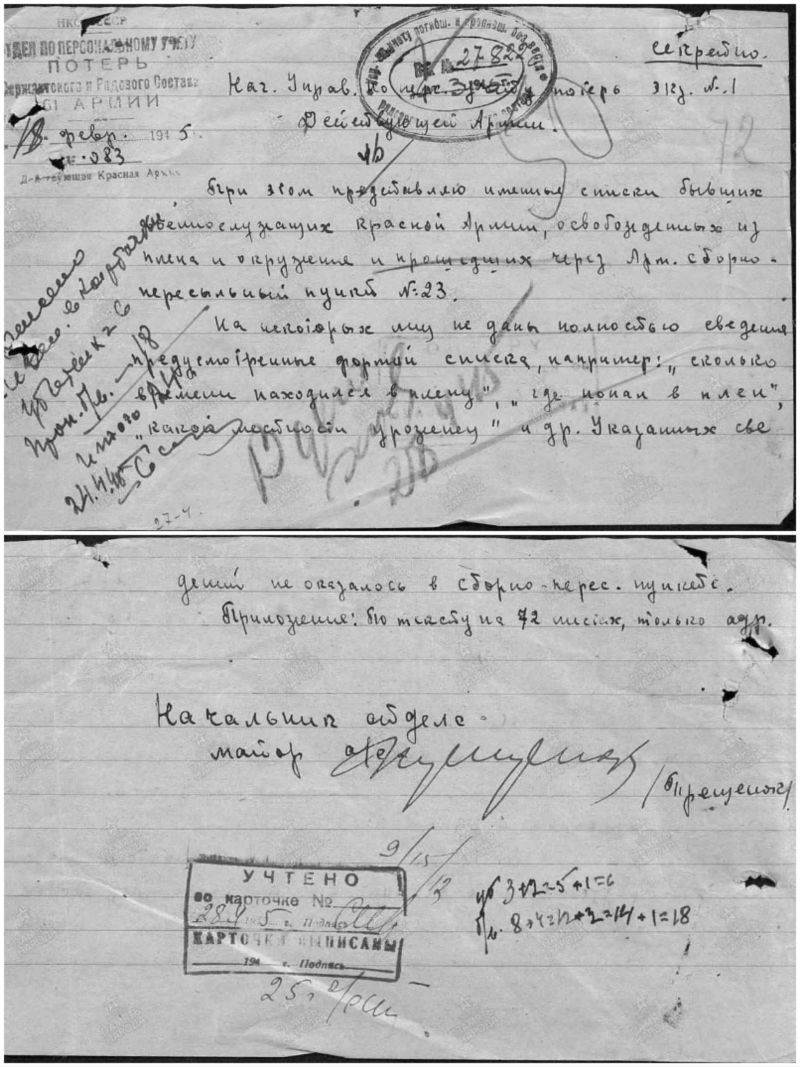 НКО СССР
ОТДЕЛ ПО ПЕРСОНАЛЬНОМУ УЧЕТУ
ПОТЕРЬ
Сержантского и Рядового Состава
61 АРМИИ
18 февр. 1945 г.
№ 083
Действующая Красная Армия
27824
Секретно.
Экз. №1
Нач. Управ. по перс. учету потерь
Действующей Армии.
72
При этом представляю именные списки бывших
военнослужащих красной Армии, освобожденных из
плена и окружения и прошедших через Арм. сборно-
пересыльный пункт №23.
На некоторых лиц не даны полностью сведения
предусмотренные формой списка, например: „сколько
времени находился в плену", „где попал в плен",
„какой местности уроженец" и др. Указанных све
24.4.45
27-4.
дений не оказалось в сборно-перес. пункте.
Приложение: По тексту на 72 листах, только адр.
Начальник отдела
майор
/Прещенок/
9/15/13
УЧТЕНО
по карточке №
28.4 1945 г. Подпись
КАРТОЧКИ ВЫПИСАНЫ
194 г. Подпись
уб 3+2=5+1=6
п/в. 8+4=12+2=14+1=18